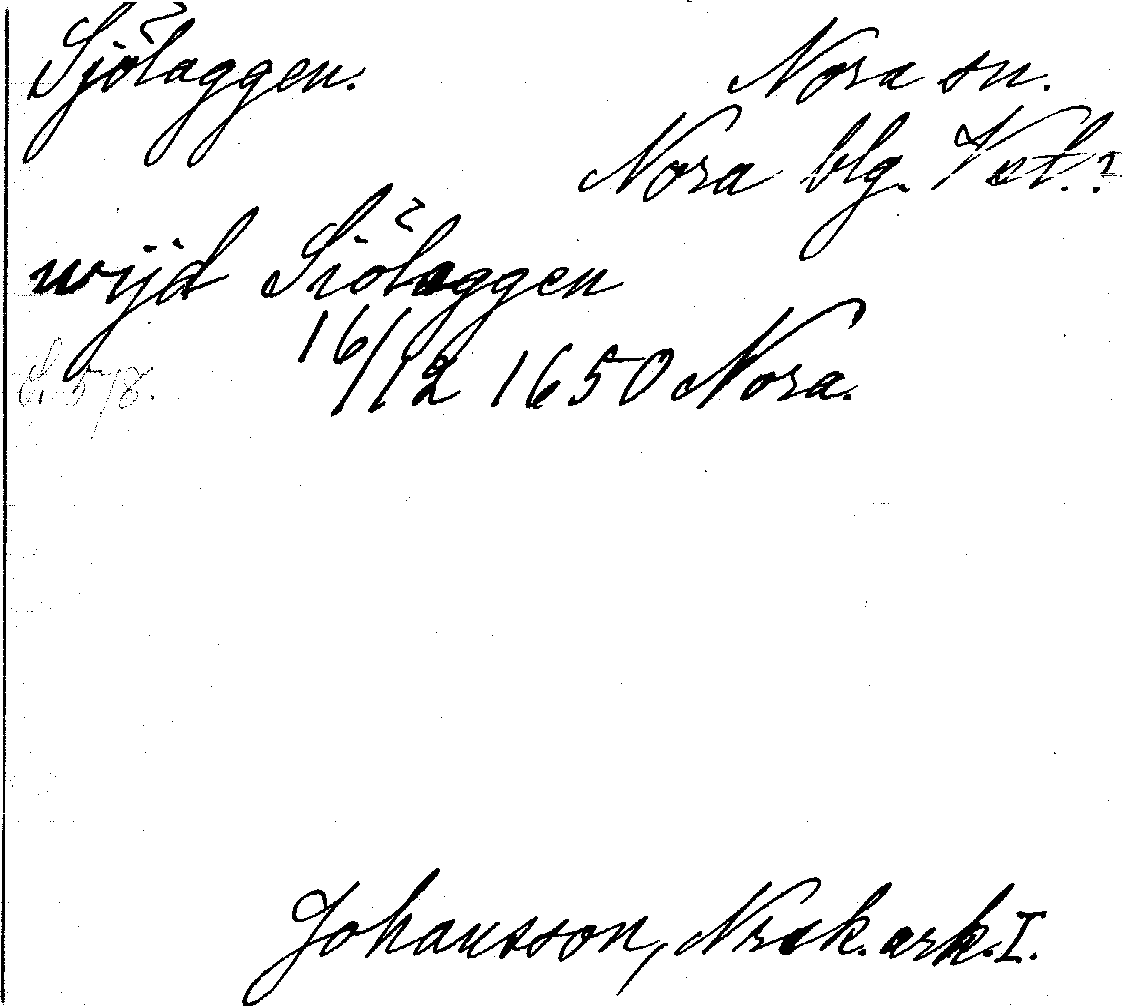 Sjölaggen. Nora sn.
Nora blg. Vst.?
wijd Siölaggen
16/12 1650 Nora.
S. 57
Johansson, Nrsk. ark. I.